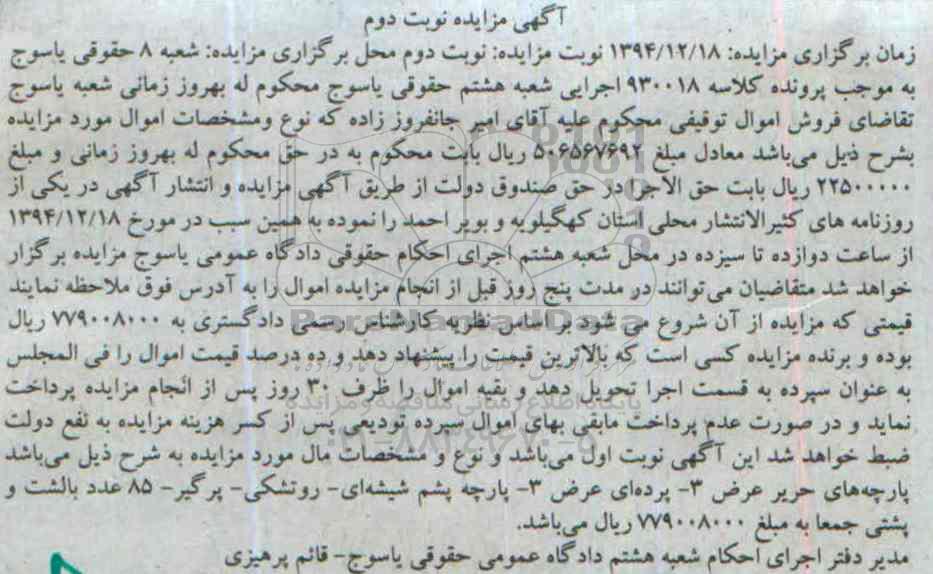 آگهی مزایده نوبت دوم
زمان برگزاری مزایده: ۱۳۹۴/۱۲/۱۸ نوبت مزایده: نوبت دوم محل برگزاری مزایده: شعبه ۸ حقوقی یاسوج
به موجب پرونده کلاسه ۹۳۰۰۱۸ اجرایی شعبه هشتم حقوقی یاسوج محکوم له بهروز زمانی شعبه یاسوج
تقاضای فروش اموال توقیفی محکوم علیه آقای امیر جانفروز زاده که نوع ومشخصات اموال مورد مزایده
بشرح ذیل می‌باشد معادل مبلغ ۵۰۶۵۶۷۶۹۲ ریال بابت محکوم به در حق محکوم له بهروز زمانی و مبلغ
۲۲۵۰۰۰۰۰ ریال بابت حق الاجرا در حق صندوق دولت از طریق آگهی مزایده و انتشار آگهی در یکی از
روزنامه های کثیرالانتشار محلی استان کهگیلویه و بویر احمد را نموده به همین سبب در مورخ ۱۳۹۴/۱۲/۱۸
از ساعت دوازده تا سیزده در محل شعبه هشتم اجرای احکام حقوقی دادگاه عمومی یاسوج مزایده برگزار
خواهد شد متقاضیان می‌توانند در مدت پنج روز قبل از انجام مزایده اموال را به آدرس فوق ملاحظه نمایند
قیمتی که مزایده از آن شروع می شود بر اساس نظریه کارشناس رسمی دادگستری به ۷۷۹۰۰۸۰۰۰ ریال
بوده و برنده مزایده کسی است که بالاترین قیمت را پیشنهاد دهد و ده درصد قیمت اموال را فی المجلس
به عنوان سپرده به قسمت اجرا تحویل دهد و بقیه اموال را ظرف ۳۰ روز پس از انجام مزایده پرداخت
نماید و در صورت عدم پرداخت مابقی بهای اموال سپرده تودیعی پس از کسر هزینه مزایده به نفع دولت
ضبط خواهد شد این آگهی نوبت اول می‌باشد و نوع و مشخصات مال مورد مزایده به شرح ذیل می‌باشد
پارچه‌های حریر عرض ۳- پرده‌ای عرض ۳- پارچه پشم شیشه‌ای- روتشکی- پرگیر- ۸۵ عدد بالشت و
پشتی جمعا به مبلغ ۷۷۹۰۰۸۰۰۰ ریال می‌باشد.
مدیر دفتر اجرای احکام شعبه هشتم دادگاه عمومی حقوقی یاسوج- قائم پرهیزی
ParsNamadData